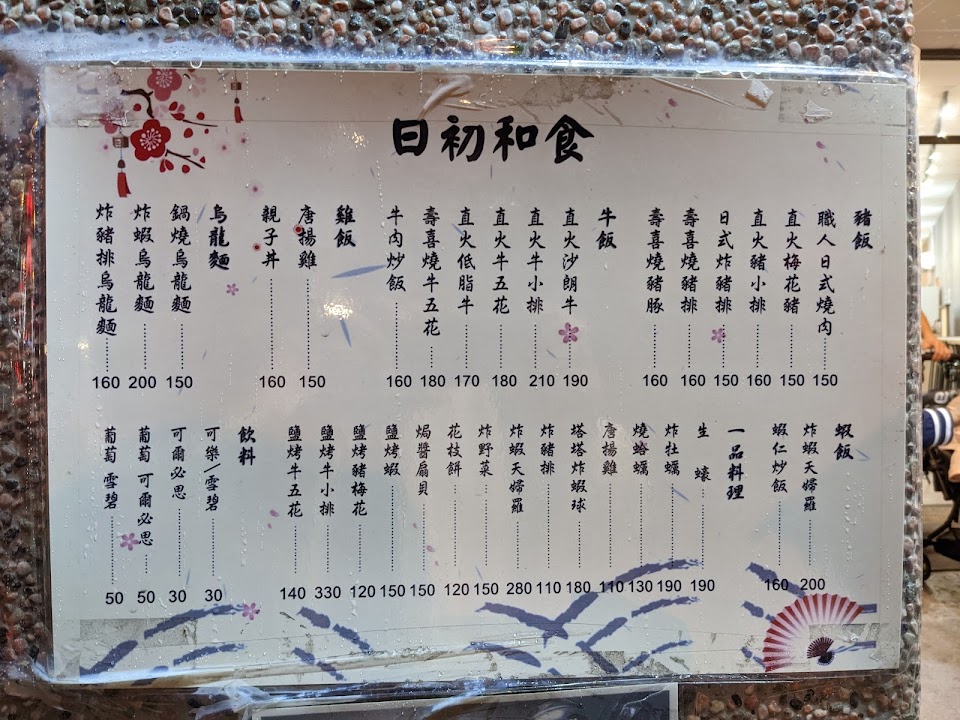 日初和食
豬飯
職人日式燒肉 150
直火梅花豬 150
直火豬小排 160
日式炸豬排 150
壽喜燒豬排 160
壽喜燒豬豚 160
牛飯
直火沙朗牛 190
直火牛小排 210
直火牛五花 180
直火低脂牛 170
壽喜燒牛五花 180
牛肉炒飯 160
雞飯
唐揚雞 150
親子丼 160
烏龍麵
鍋燒烏龍麵 150
炸蝦烏龍麵 200
炸豬排烏龍麵 160
蝦飯
炸蝦天婦羅 200
蝦仁炒飯 160
一品料理
生蠔 190
炸牡蠣 190
燒蛤蠣 130
唐揚雞 110
塔塔炸蝦球 180
炸豬排 110
炸蝦天婦羅 280
炸野菜 150
花枝餅 120
焗醬扇貝 150
鹽烤蝦 150
鹽烤豬梅花 120
鹽烤牛小排 330
鹽烤牛五花 140
飲料
可樂/雪碧 30
可爾必思 30
葡萄 可爾必思 50
葡萄 雪碧 50